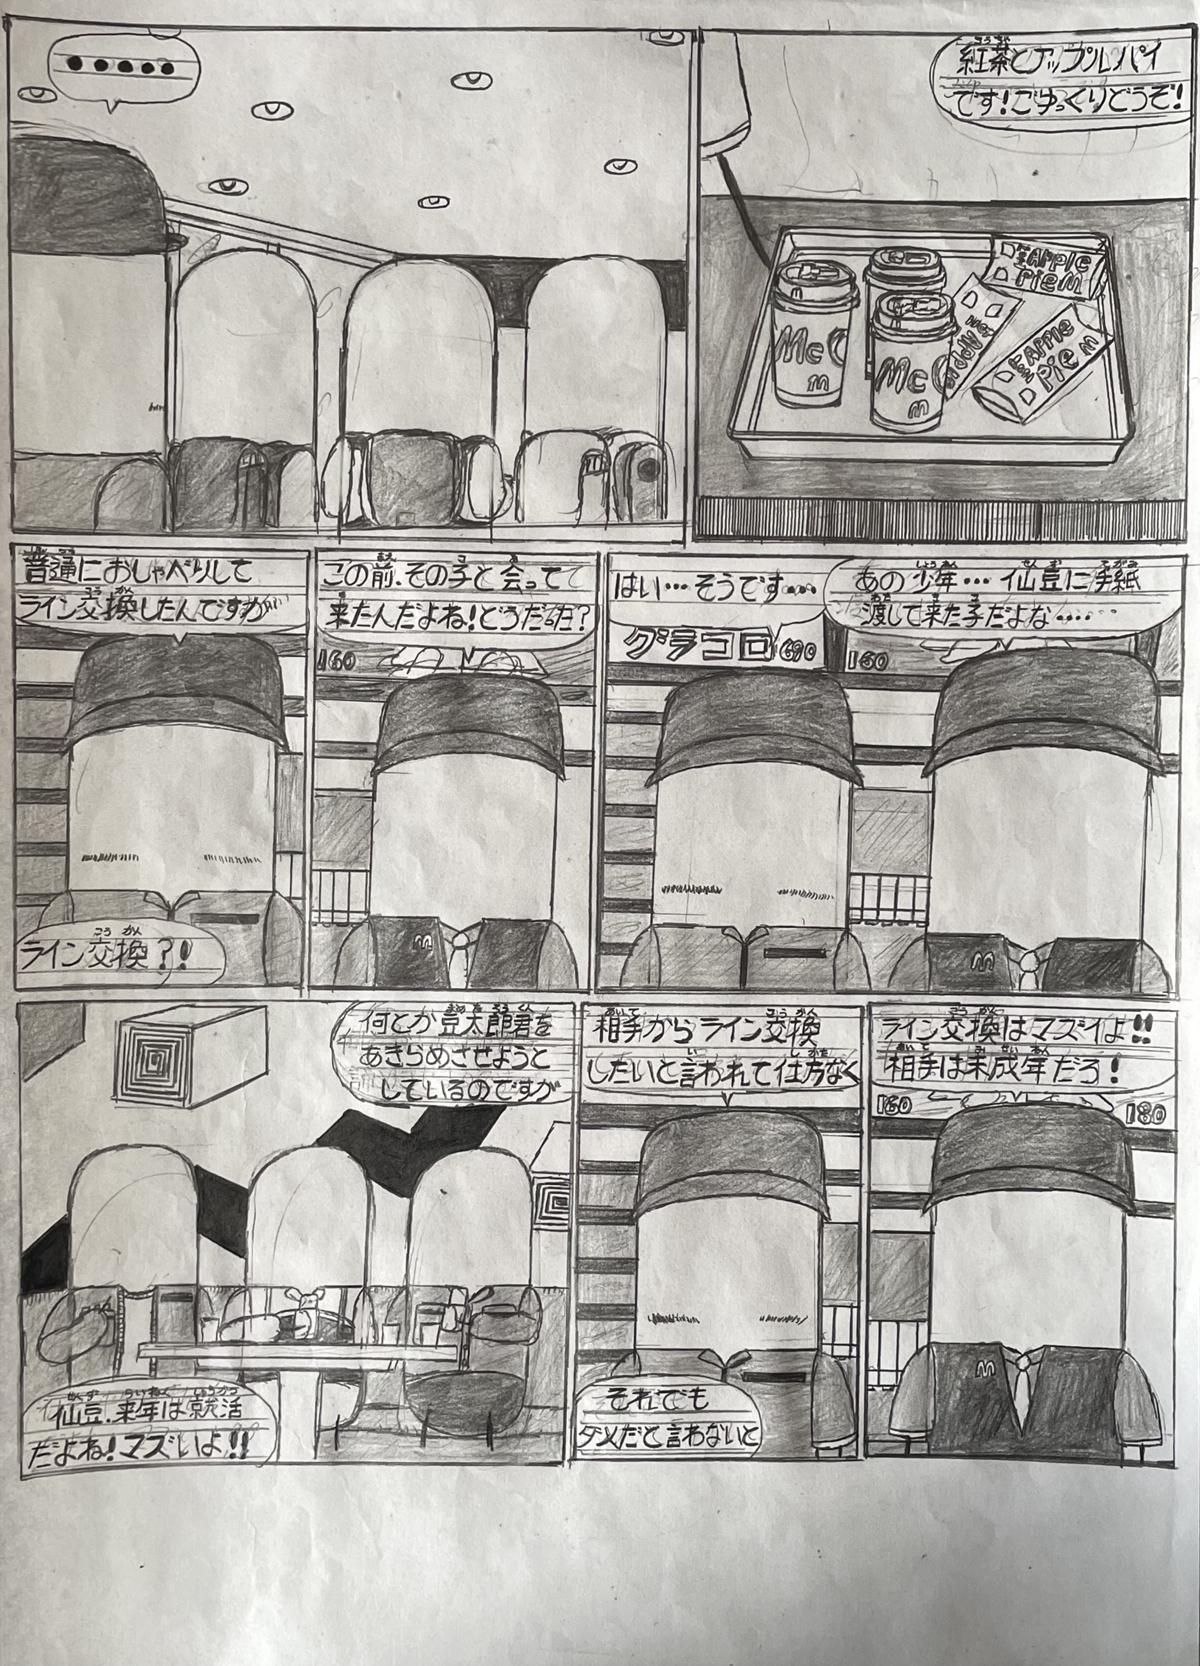 紅茶とアップルパイ
です！ごゆっくりどうぞ！
・・・・・
McC
m
McC
m
Apple
Pie m
Apple
Pie m
あの少年…仙豆に手紙
渡して来た子だよな……
はい…そうです……
グラコロ 690
160
この前、その子と会って
来たんだよね！どうだった？
160
普通におしゃべりして
ライン交換したんですが
ライン交換？！
m
m
ライン交換はマズイよ！！
相手は未成年だろ！
180
180
m
相手からライン交換
したいと言われて仕方なく
それでも
ダメだと言わないと
何とか豆太郎君を
あきらめさせようと
しているのですが
仙豆、来年は就活
だよね！マズいよ！！